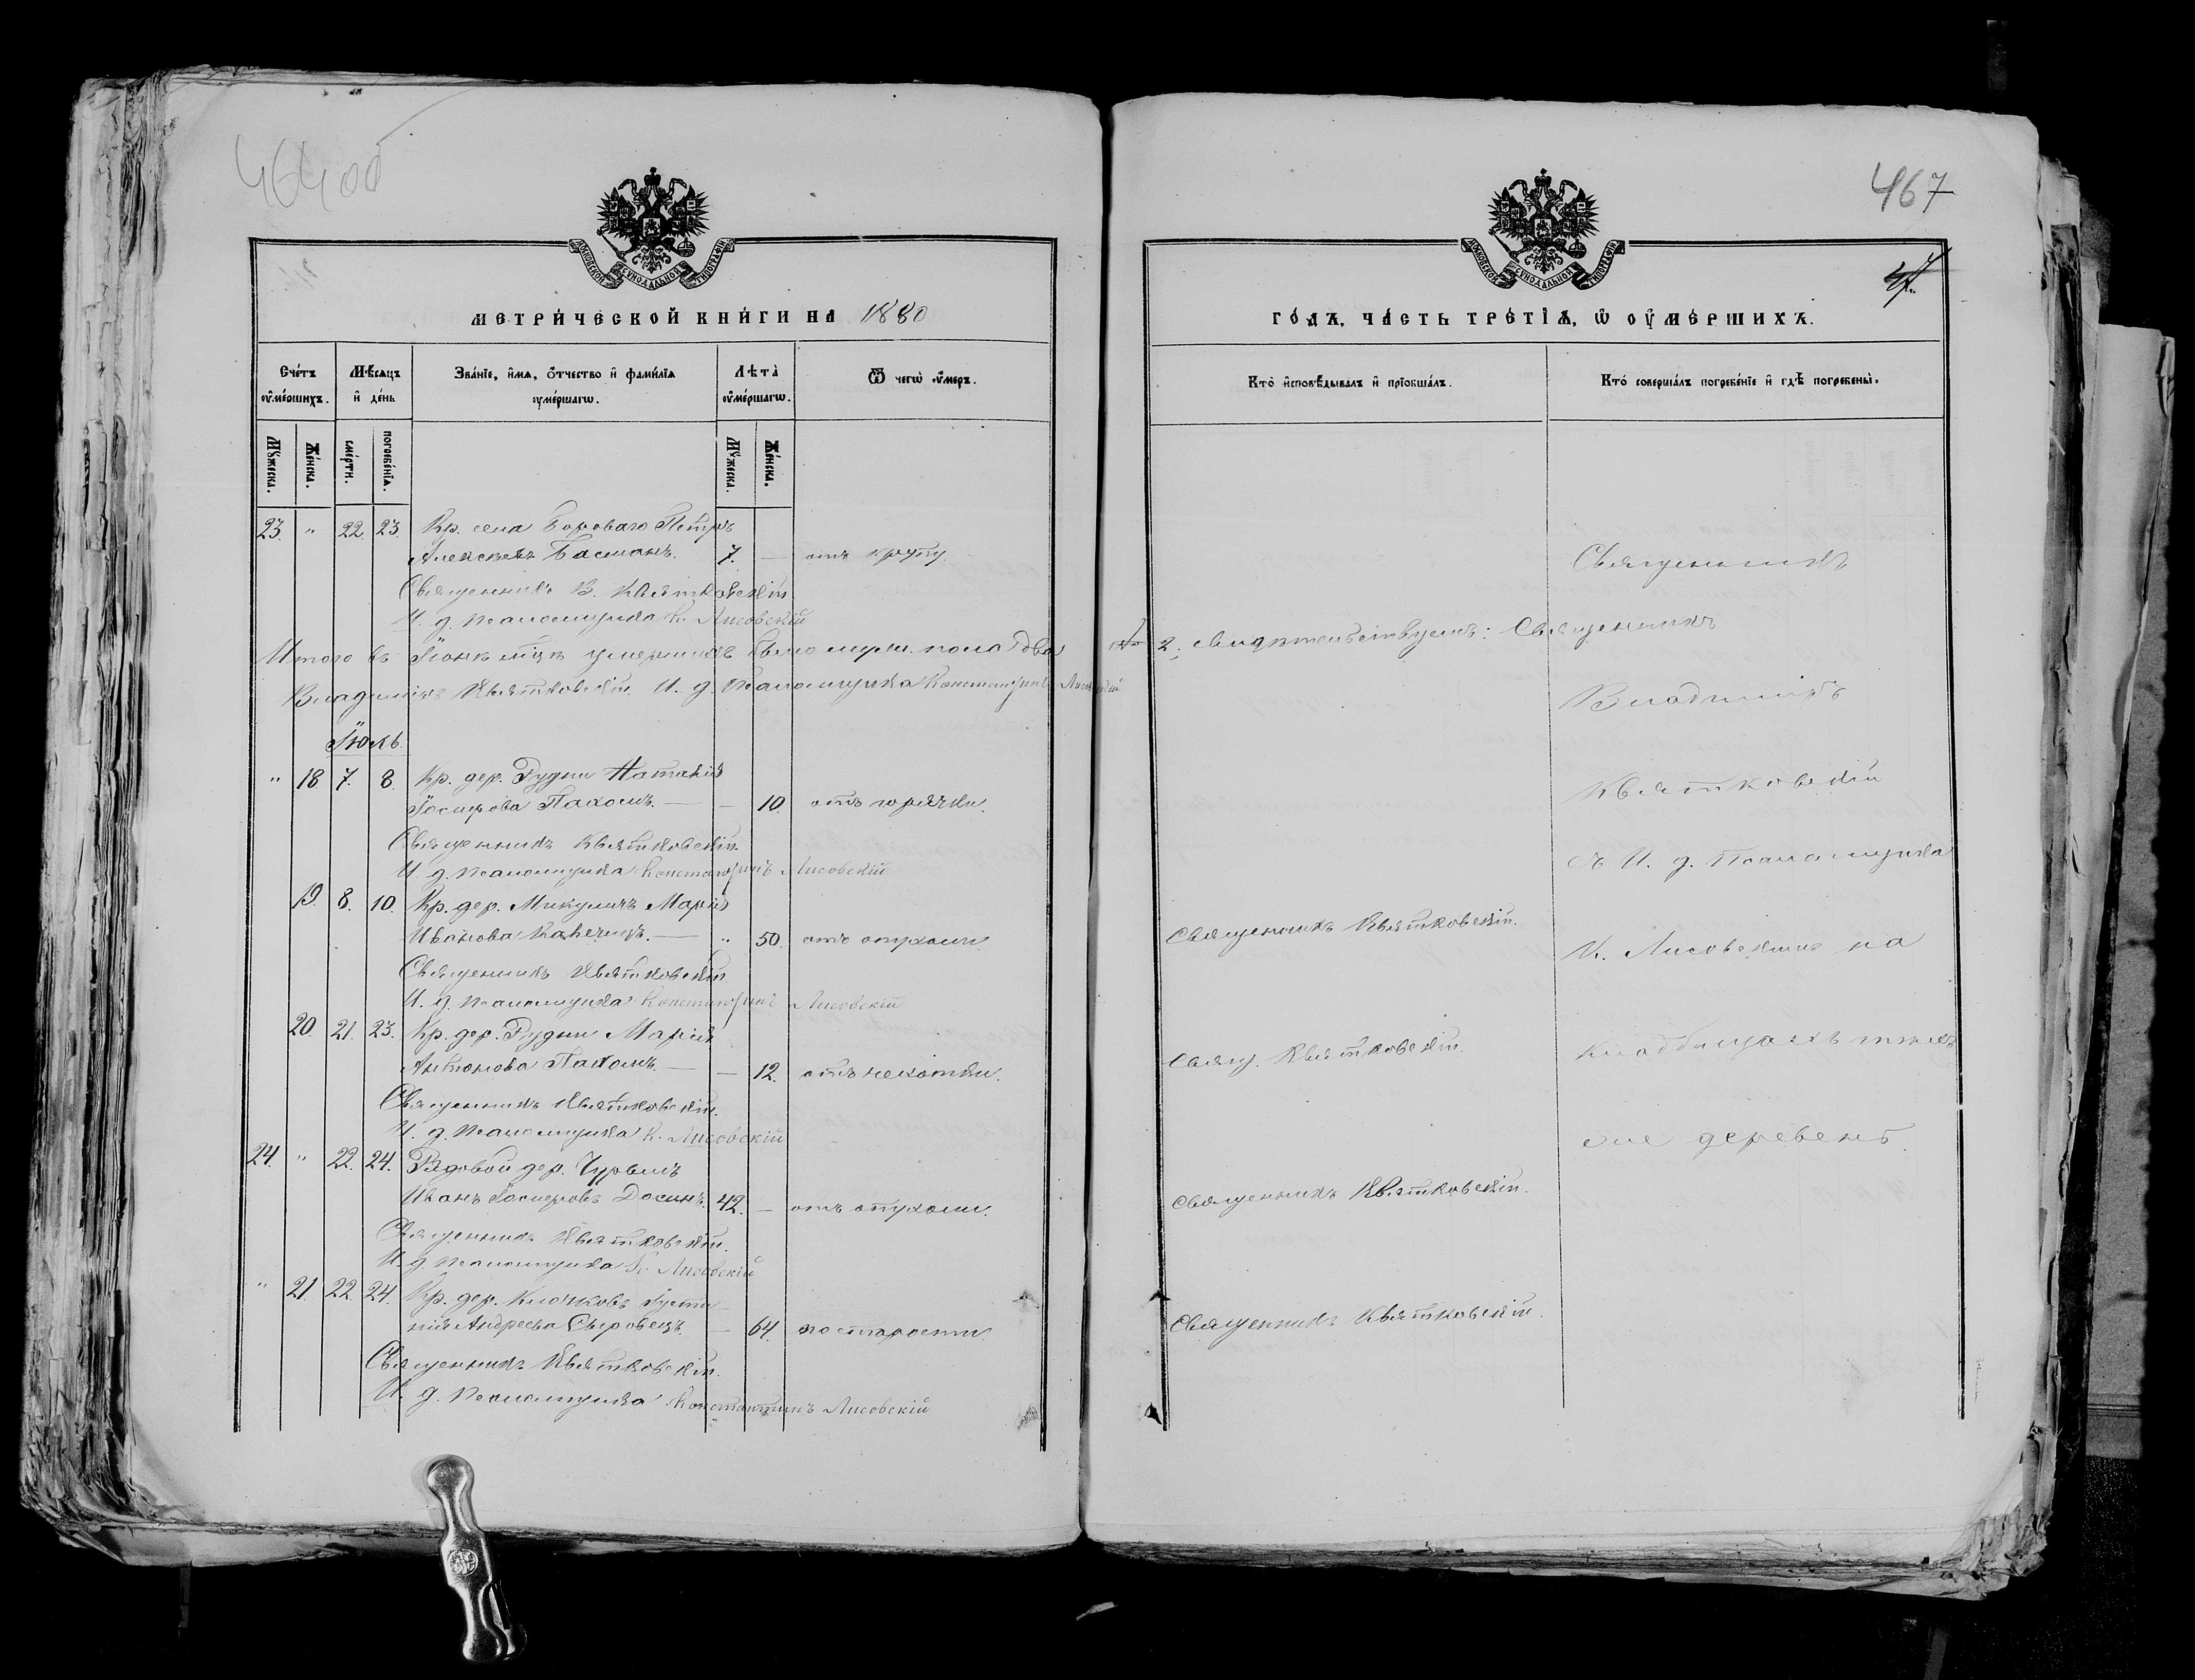 46400
467
МОСКОВСКОЙ СѴНОДАЛЬНОЙ ТИПОГРАФІИ
МОСКОВСКОЙ СѴНОДАЛЬНОЙ ТИПОГРАФІИ
МЕТРИЧЕСКОЙ КНИГИ НА 1880
ГОДЪ, ЧАСТЬ ТРЕТІЯ, Ѿ ОУМЕРШИХЪ.
Счетъ оумершихъ.
Мѣсяцъ и день
Званіе, имя, отчество и фамилія оумершагѡ.
Лѣта оумершагѡ.
Ѿ чегѡ оумеръ.
Кто исповѣдывалъ и пріобщалъ.
Кто совершалъ погребеніе и гдѣ погребены.
Мужеска.
Женска.
смерти.
погребенія.
Мужеска.
Женска.
23. " 22. 23. Кр. села Бороваго Петръ
Алексѣевъ Басманъ. 7. — отъ крупу.
Священникъ В. Квятковскій
И. д. псаломщика К. Лисовскій
Итого въ Іюнѣ мцѣ умершихъ было муж. пола два 2, свидѣтельствуемъ: Священникъ
Владиміръ Квятковскій. И. д. Псаломщика Константинъ Лисовскій
Іюль.
" 18. 7. 8. Кр. дер. Рудни Наталія
Іосифова Пахомъ. — — 10. отъ горячки.
Священникъ Квятковскій.
И. д. псаломщика Константинъ Лисовскій
19. 8. 10. Кр. дер. Микуличъ Марія
Иванова — " 50. отъ опухоли
Священникъ Квятковскій.
Священникъ Квятковскій.
И. д. псаломщика Константинъ Лисовскій
20. 21. 23. Кр. дер. Рудни Марія
Антонова Пахомъ. — — 12. отъ чахотки.
Свящ. Квятковскій.
Священникъ Квятковскій.
И. д. псаломщика К. Лисовскій
24. " 22. 24. Рядовой дер.
Иванъ Іосифовъ 42. — отъ опухоли.
Священникъ Квятковскій.
Священникъ Квятковскій.
И. д. псаломщика К. Лисовскій
" 21. 22. 24. Кр. дер. Клочковъ Іусти-
нія Андреева — 64. по старости.
Священникъ Квятковскій.
Священникъ Квятковскій.
И. д. Псаломщика Константинъ Лисовскій
Священникъ
Владиміръ
Квятковскій
съ И. д. Псаломщика
К. Лисовскимъ на
кладбищахъ тѣхъ
же деревень.